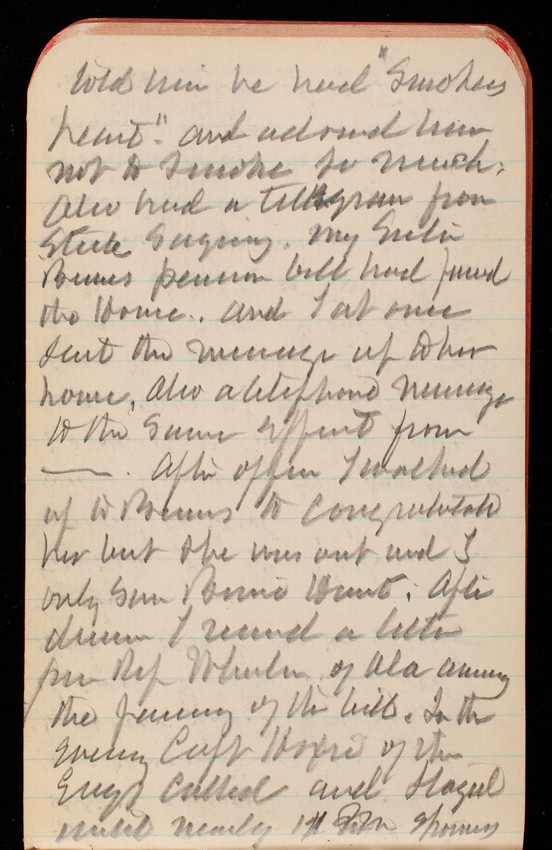 told him he had "Smokers
heart". and advised him
not to smoke so much.
Also had a telegram from
Steele Saying. My Sister
pension bill had passed
the House. and I at once
sent the message up to her
home, Also a telephone message
to the same effect from
——. After office I walked
up to to congratulate
her but she was out and I
only saw Hunt. After
dinner I received a letter
from Rep Wheeler of Ala
the passing of the bill. In the
evening Capt of the
Engs called and stayed
until nearly 11